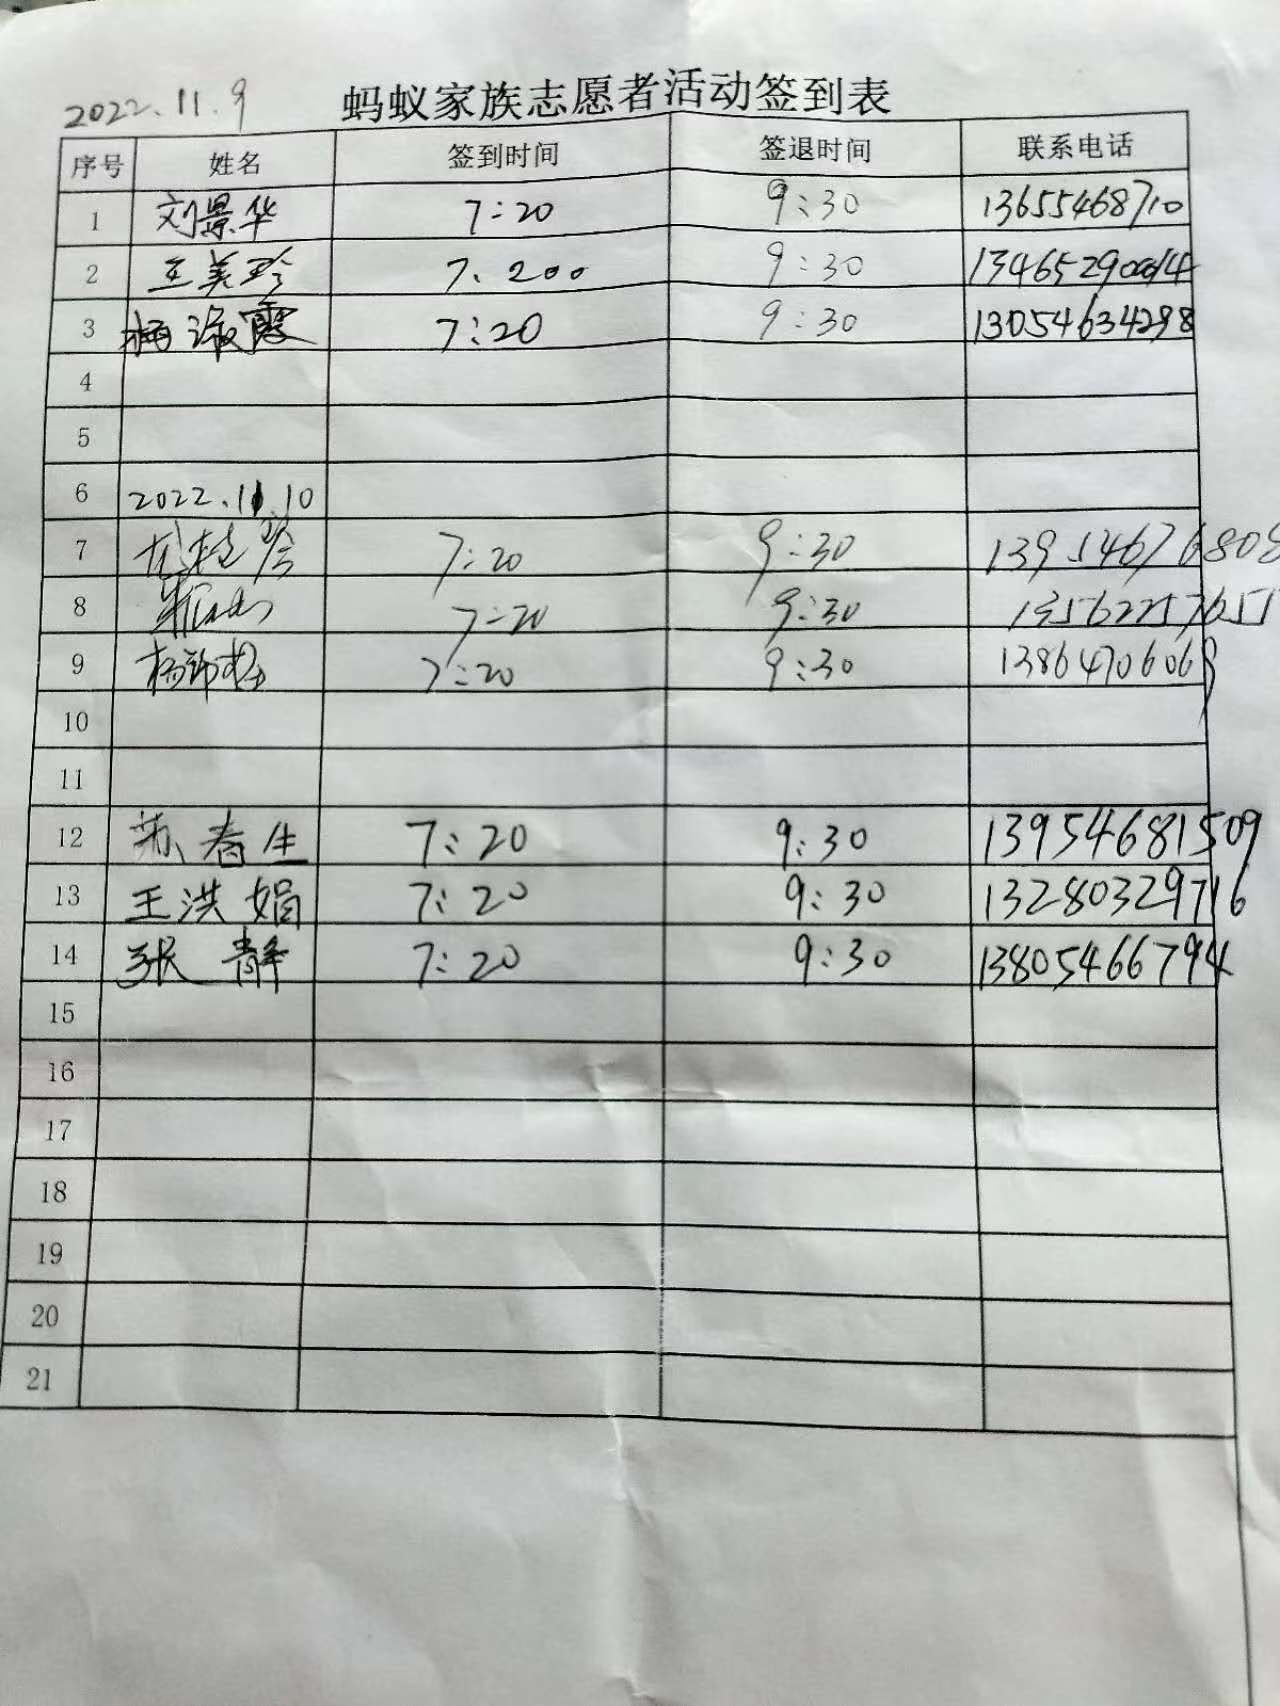 2022.11.9 蚂蚁家族志愿者活动签到表
序号 姓名 签到时间 签退时间 联系电话
1 刘景华 7:20 9:30 13655468710
2 王美玲 7:200 9:30
3 杨淑霞 7:20 9:30 13054634298
4
5
6 2022.11.10
7 7:20 9:30 13954676808
8 7:20 9:30
9 7:20 9:30 13864706069
10
11
12 苏春生 7:20 9:30 13954681509
13 王洪娟 7:20 9:30 13280329716
14 张静 7:20 9:30 13805466794
15
16
17
18
19
20
21